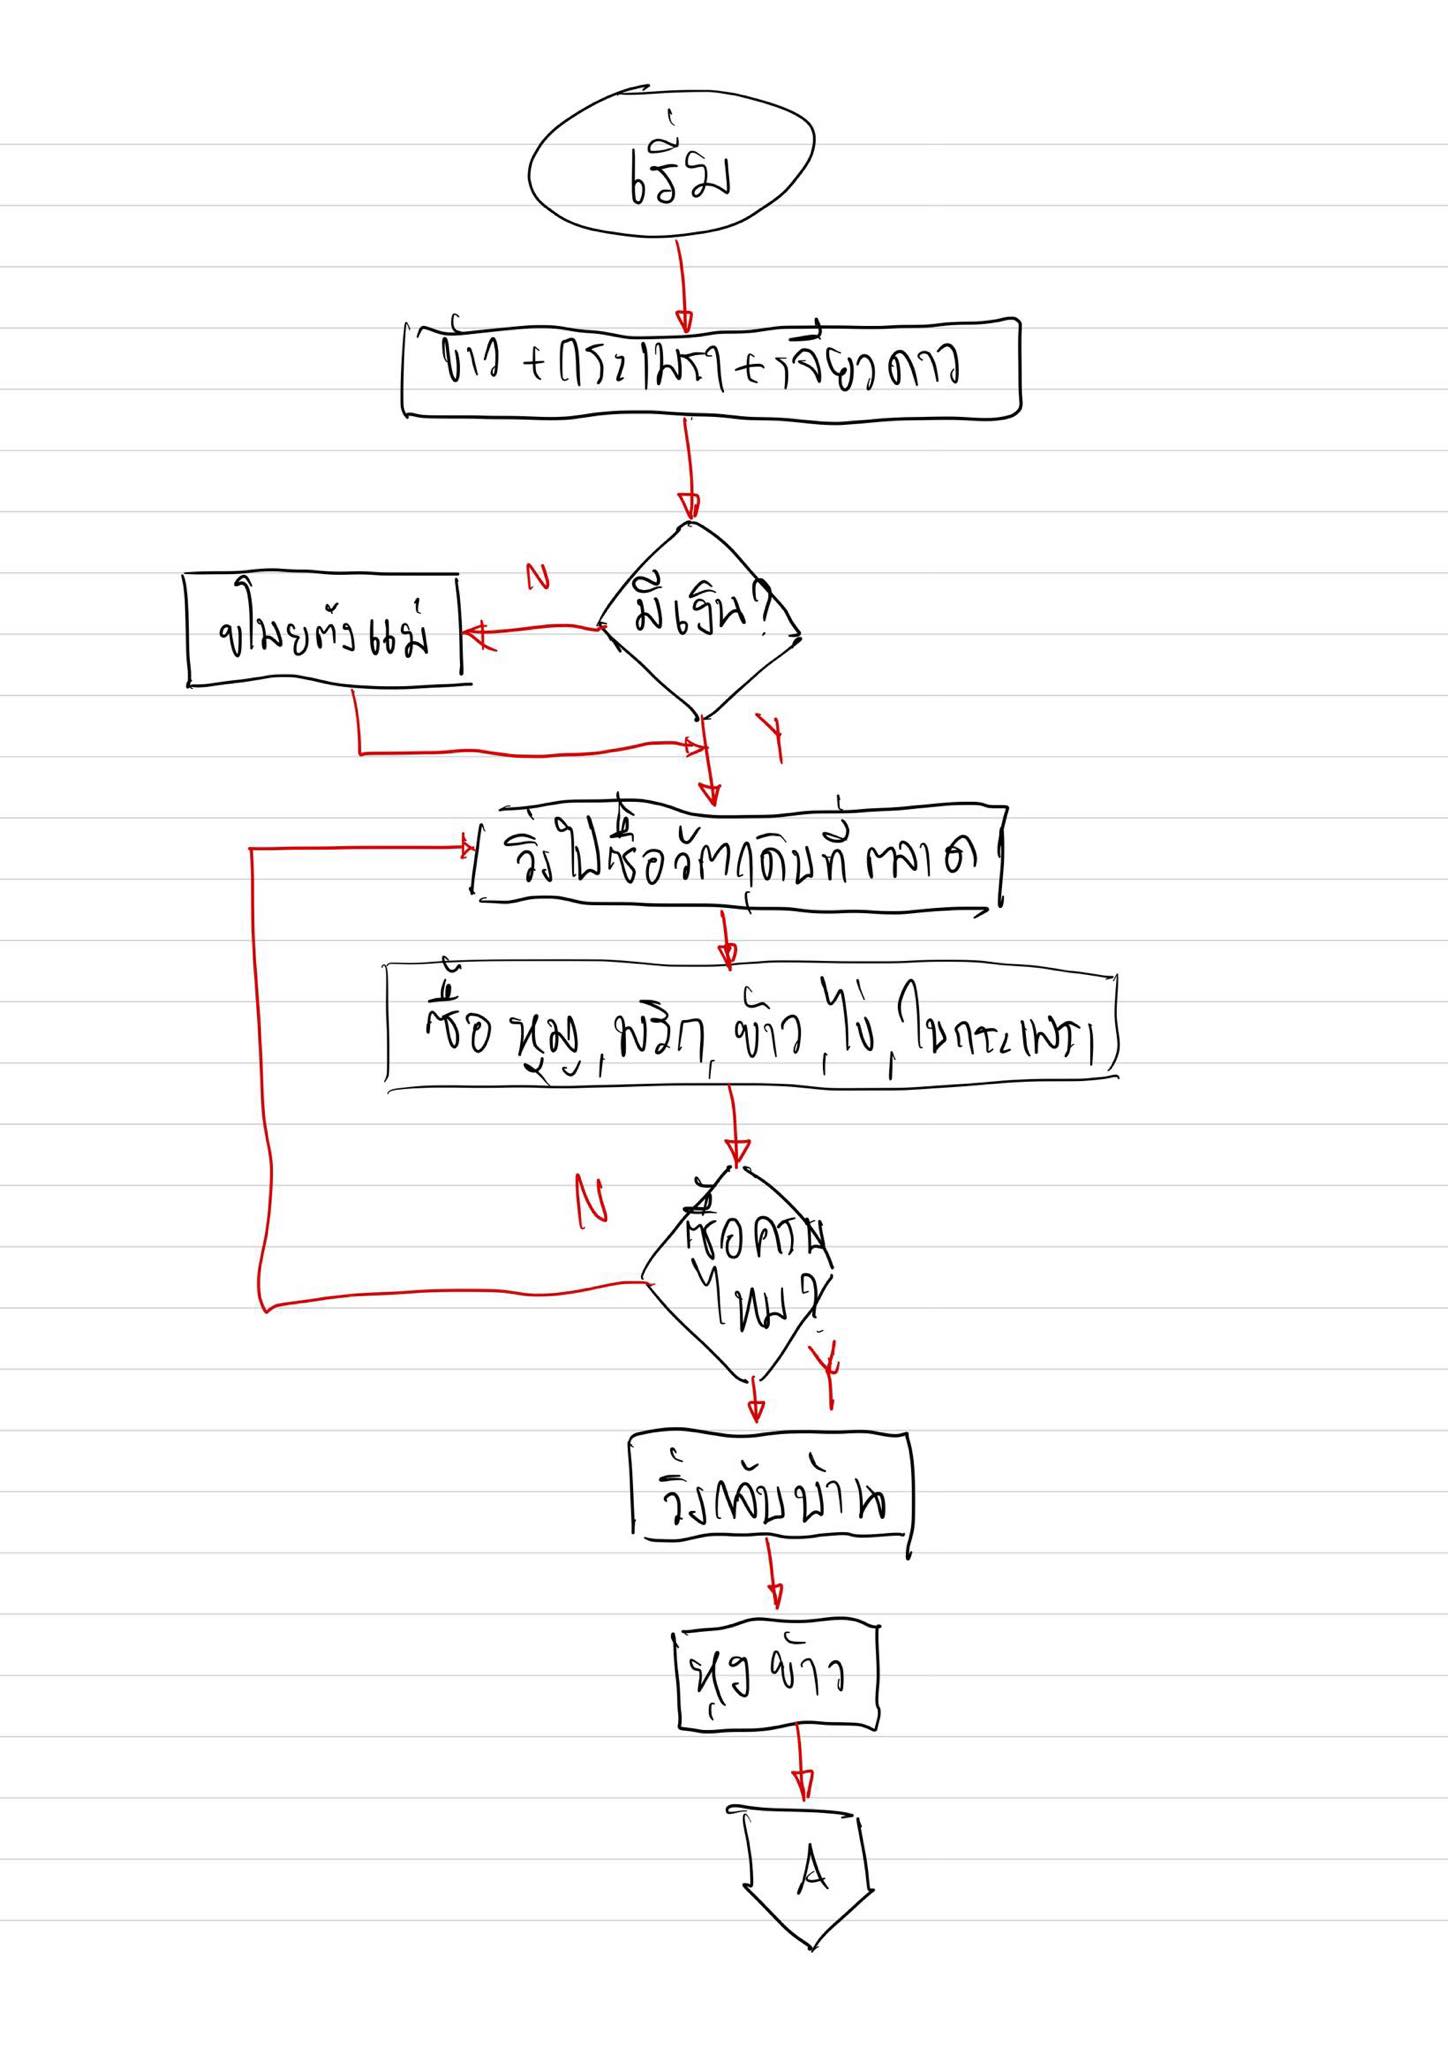 เริ่ม
ข้าว + กระเพรา + เจียวดาว
มีเงิน?
N
ขโมยตังแม่
Y
วิ่งไปซื้อวัตถุดิบที่ตลาด
ซื้อ หมู, พริก, ข้าว, ไข่, ใบกระเพรา
N
ซื้อครบ
ไหม?
Y
วิ่งกลับบ้าน
หุงข้าว
A